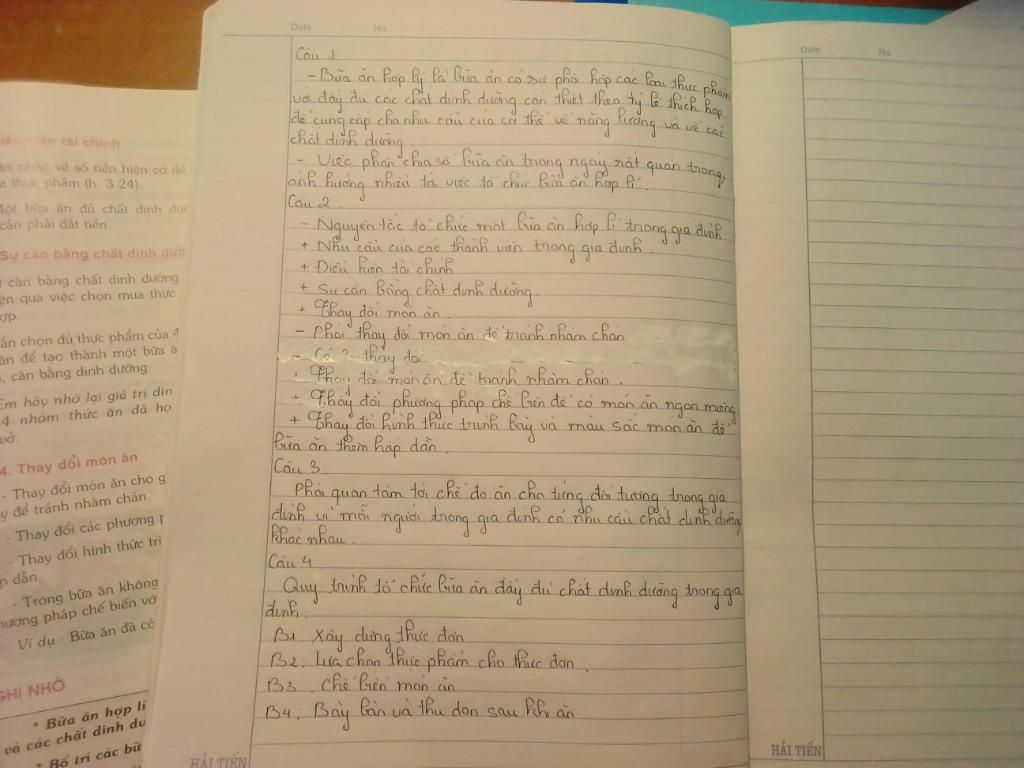 Date No
Câu 1
- Bữa ăn hợp lý là bữa ăn có sự phối hợp các loại thực phẩm
với đầy đủ các chất dinh dưỡng cần thiết theo tỷ lệ thích hợp
để cung cấp cho nhu cầu của cơ thể về năng lượng và về các
chất dinh dưỡng.
- Việc phân chia số bữa ăn trong ngày rất quan trọng,
ảnh hưởng nhiều tới việc tổ chức bữa ăn hợp lí.
Câu 2.
- Nguyên tắc tổ chức một bữa ăn hợp lí trong gia đình
+ Nhu cầu của các thành viên trong gia đình.
+ Điều kiện tài chính
+ Sự cân bằng chất dinh dưỡng.
+ Thay đổi món ăn.
- Phải thay đổi món ăn để tránh nhàm chán
- Có 3 thay đổi
+ Thay đổi món ăn để tránh nhàm chán.
+ Thay đổi phương pháp chế biến để có món ăn ngon miệng
+ Thay đổi hình thức trình bày và màu sắc món ăn để
bữa ăn thêm hấp dẫn.
Câu 3.
Phải quan tâm tới chế độ ăn cho từng đối tượng trong gia
đình vì mỗi người trong gia đình có nhu cầu chất dinh dưỡng
khác nhau.
Câu 4
Quy trình tổ chức bữa ăn đầy đủ chất dinh dưỡng trong gia
đình.
B1 Xây dựng thực đơn
B2: Lựa chọn thực phẩm cho thực đơn.
B3: Chế biến món ăn
B4: Bày bàn và thu dọn sau khi ăn
HẢI TIẾN
Date No
HẢI TIẾN
kiện tài chính
nhắc về số tiền hiện có để
thực phẩm (h. 3.24).
Một bữa ăn đủ chất dinh dưỡ
cần phải đắt tiền.
Sự cân bằng chất dinh dưỡ
cân bằng chất dinh dưỡng
qua việc chọn mua thực
hợp.
chọn đủ thực phẩm của 4
ăn để tạo thành một bữa ă
cân bằng dinh dưỡng.
Em hãy nhớ lại giá trị din
4 nhóm thức ăn đã họ
vở.
4. Thay đổi món ăn
- Thay đổi món ăn cho g
để tránh nhàm chán.
- Thay đổi các phương p
- Thay đổi hình thức trì
dẫn.
- Trong bữa ăn không
phương pháp chế biến vớ
Ví dụ : Bữa ăn đã có
GHI NHỚ
* Bữa ăn hợp lí
và các chất dinh dư
* Bố trí các bữ